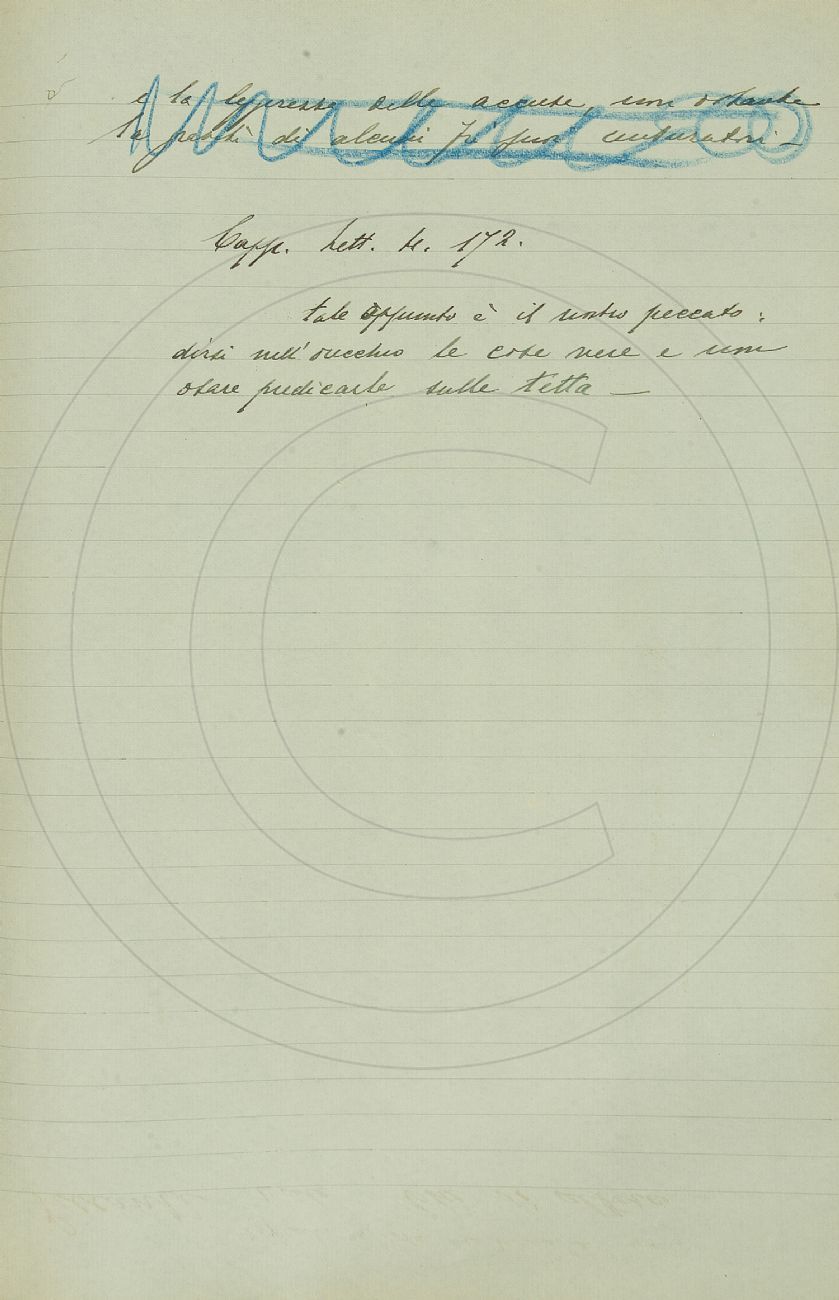 e la leggerezza delle accuse, non ostante
la bontà di alcuni fra suoi censuratori —
Capp. Lett. 172.
tale appunto è il nostro peccato:
dirsi nell'orecchio le cose vere e non
osare predicarle sulle tetta —